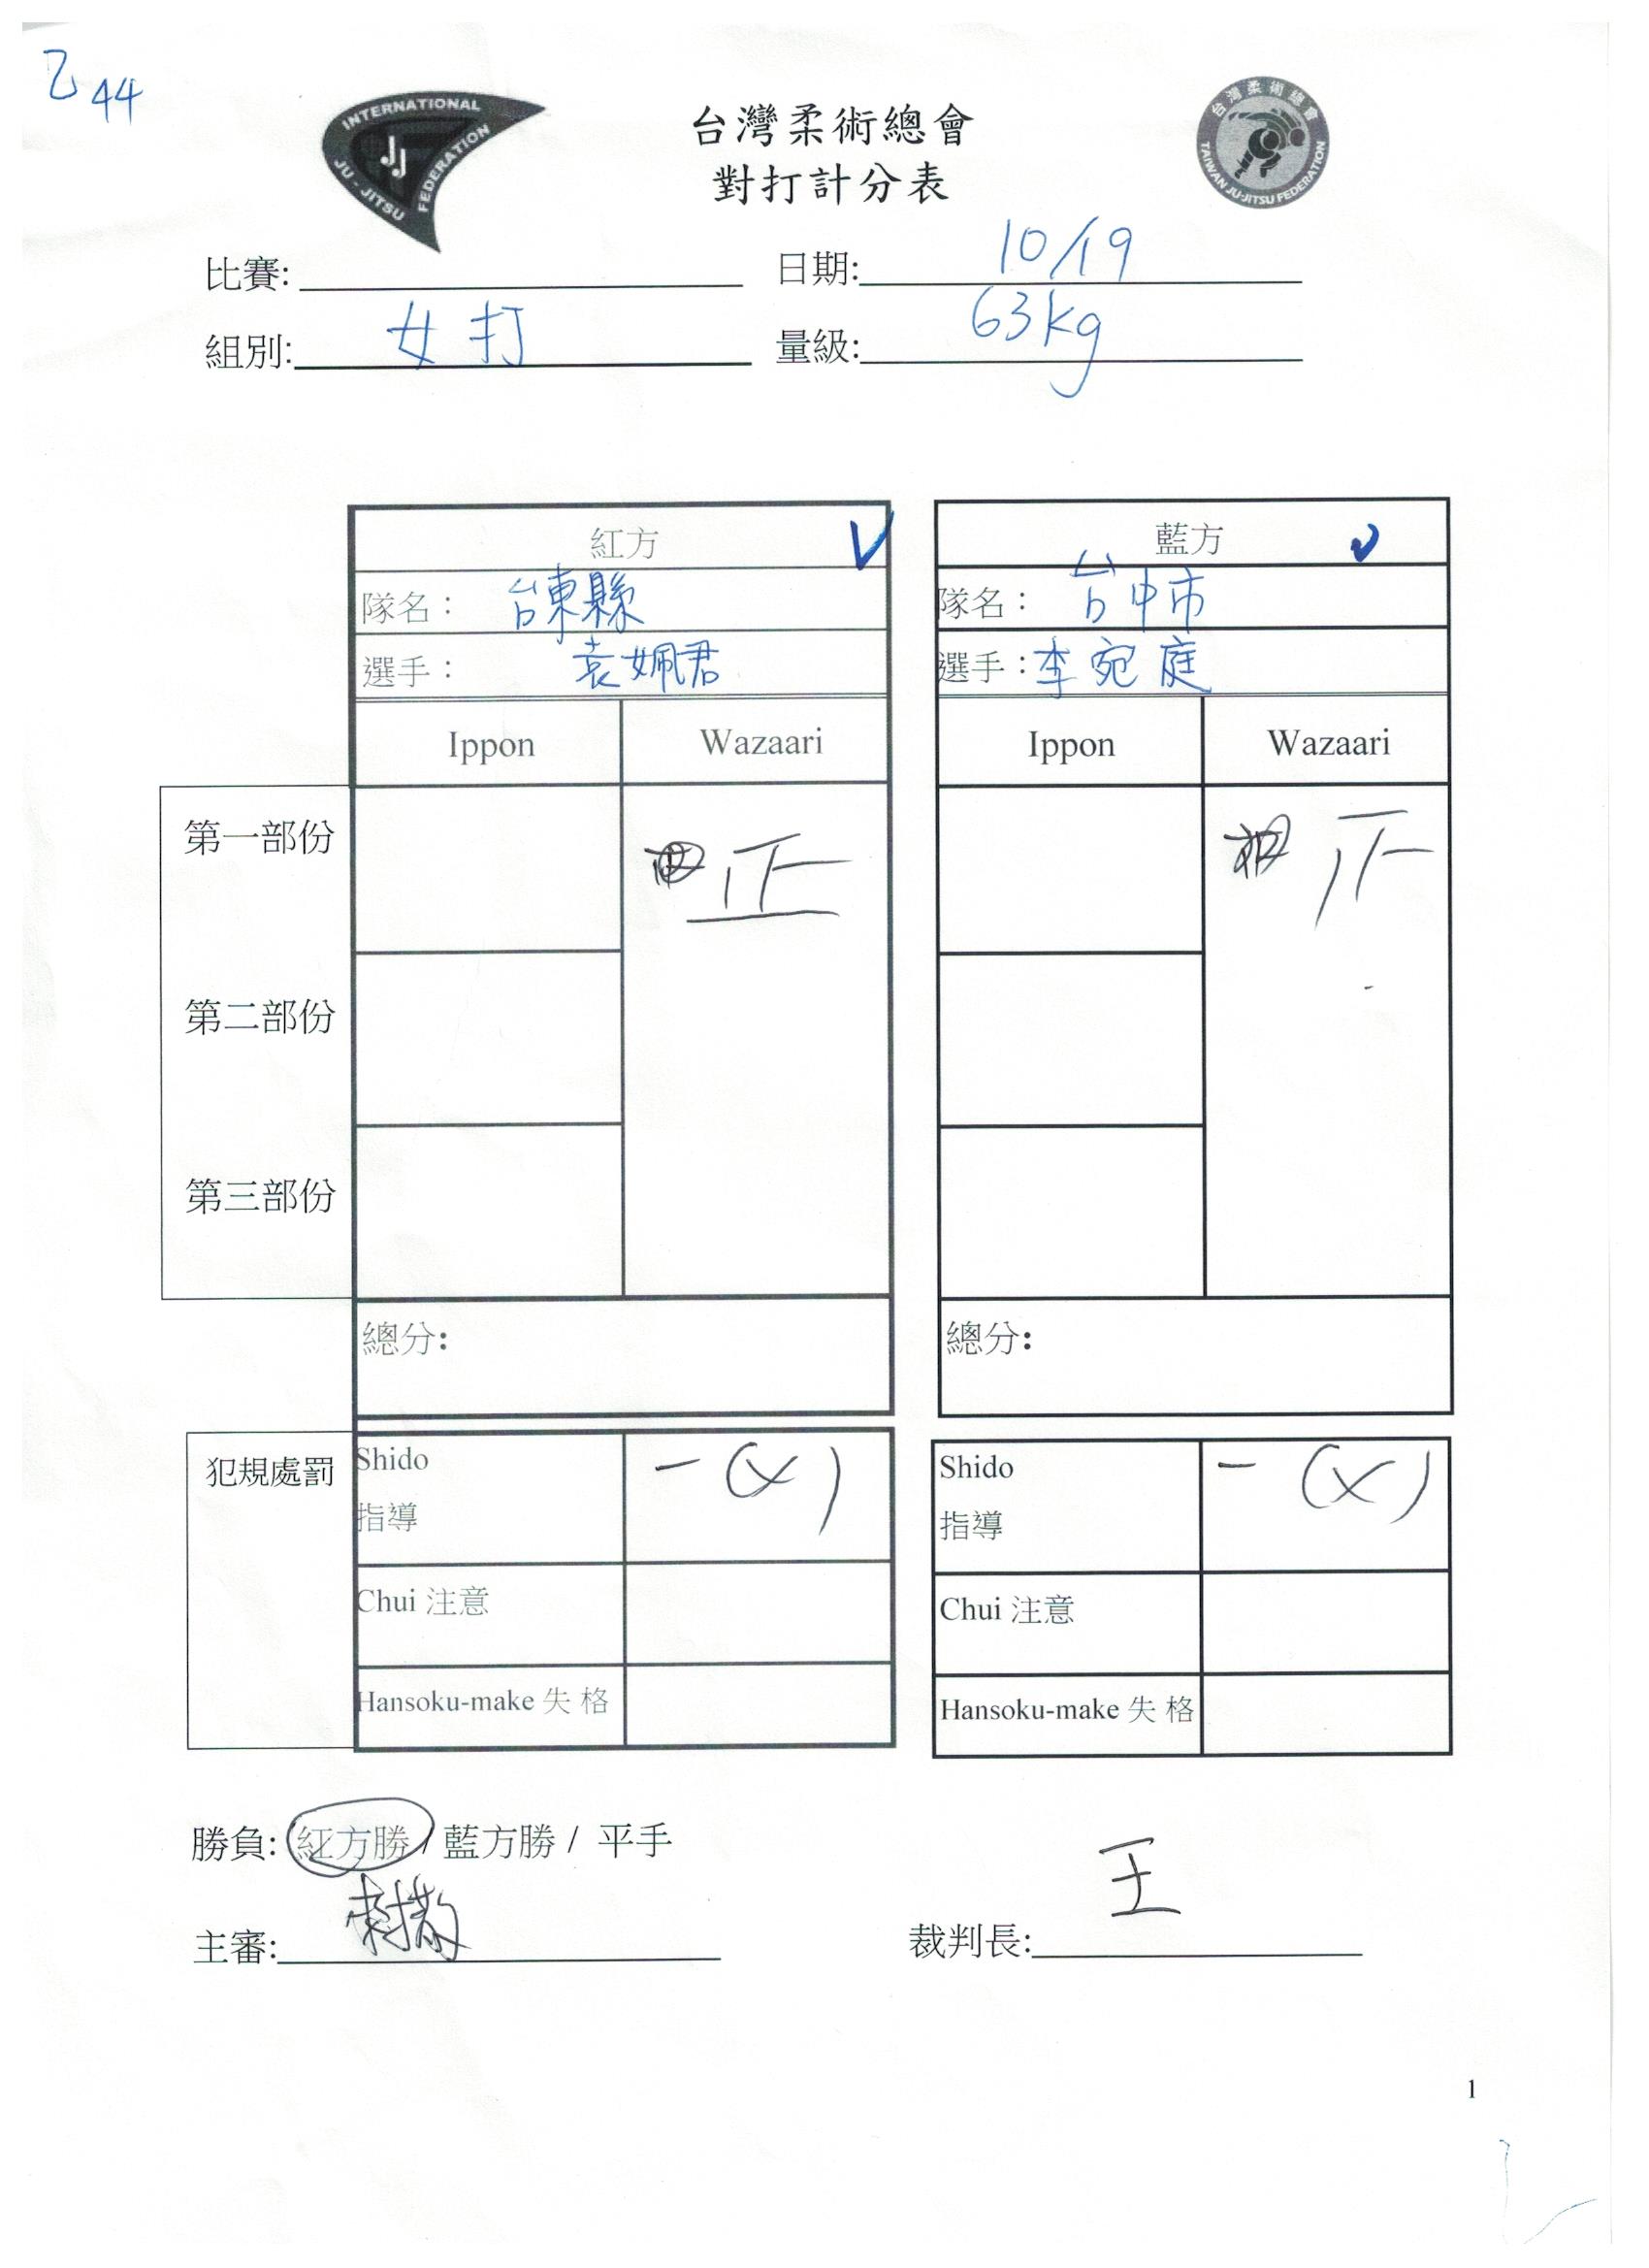 乙44
INTERNATIONAL JU-JITSU FEDERATION
JJ
台灣柔術總會
對打計分表
台灣柔術總會
TAIWAN JU-JITSU FEDERATION
比賽: 日期: 10/19
組別: 女打 量級: 63kg
紅方 ✓ 藍方 ✓
隊名： 台東縣 隊名： 台中市
選手： 袁姵君 選手：李宛庭
Ippon Wazaari Ippon Wazaari
第一部份 正 正
第二部份
第三部份
總分: 總分:
犯規處罰 Shido 指導 一 (x) Shido 指導 一 (x)
Chui 注意 Chui 注意
Hansoku-make 失格 Hansoku-make 失格
勝負: 紅方勝 / 藍方勝 / 平手
主審: 裁判長: 王
1